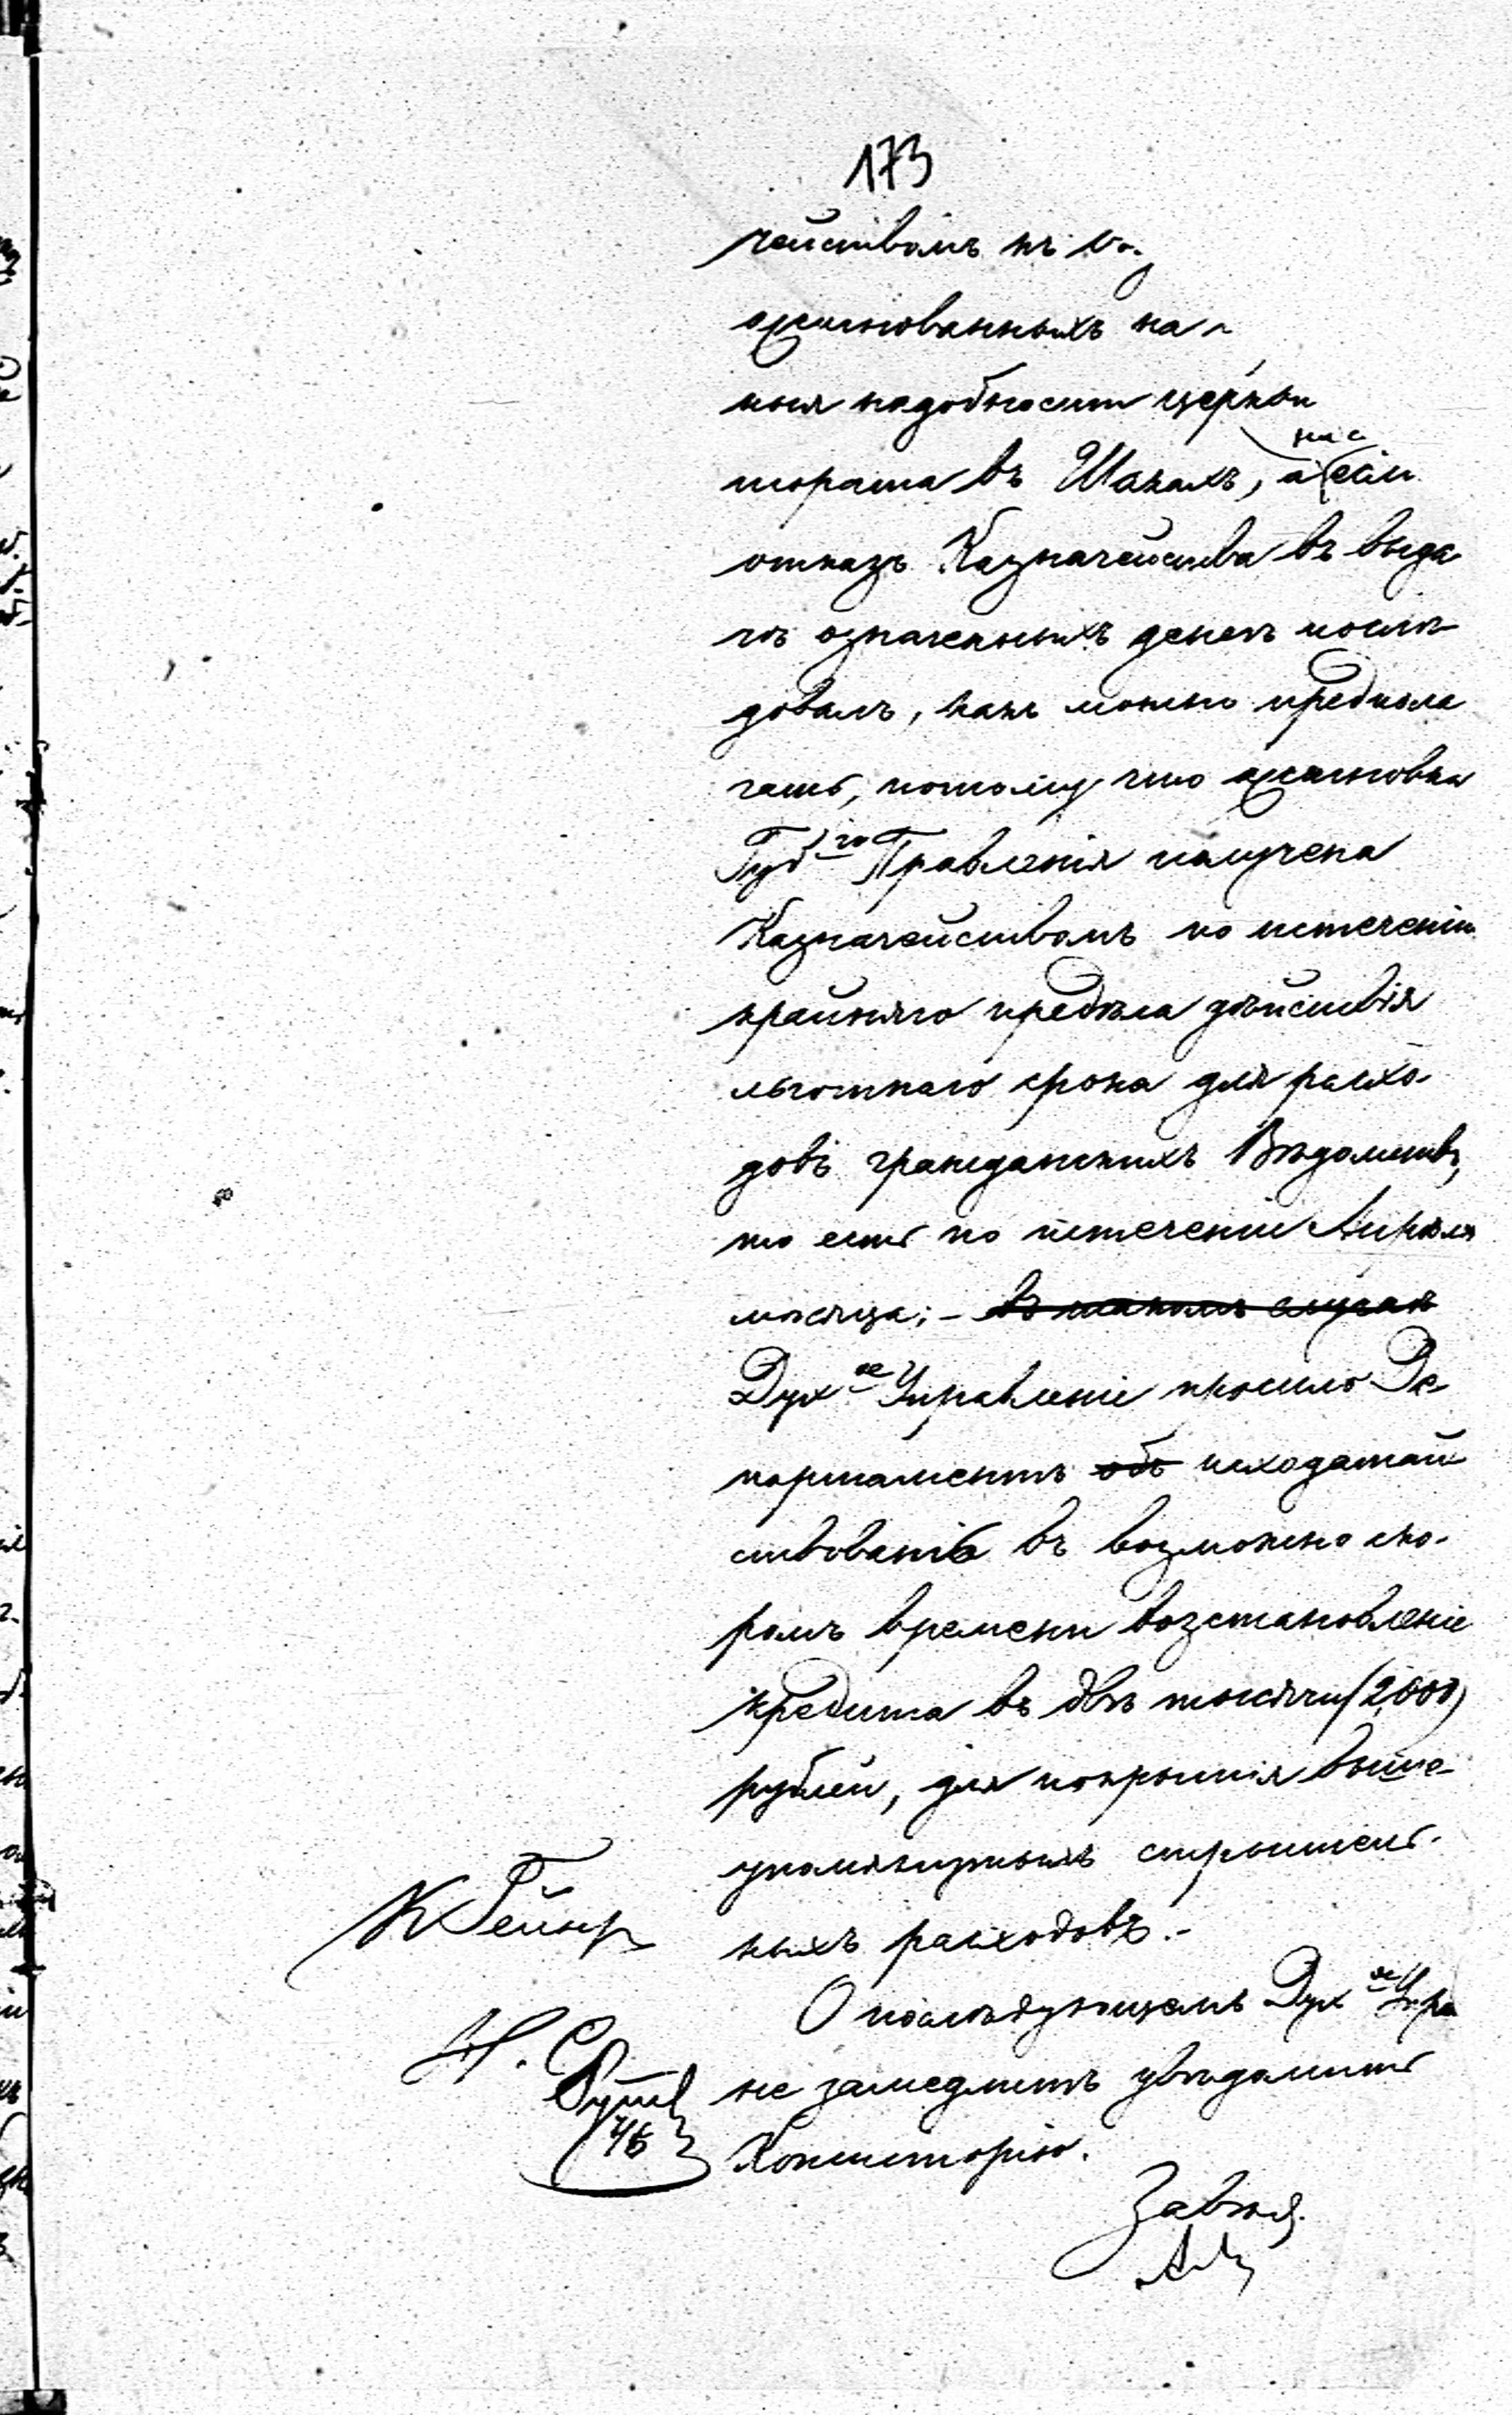 173
чействомъ къ
ассигнованныхъ на
ныя надобности церкви
тората въ Шакахъ, а если
пас
отказъ Казначейства въ выда
чѣ означенныхъ денегъ послѣ
довалъ, какъ можно предпола
гать, потому что ассигновка
Губ-го Правленія получена
Казначействомъ по истеченіи
крайняго предѣла дѣйствія
льготнаго срока для расхо-
довъ гражданскихъ Вѣдомствъ,
то есть по истеченіи Апрѣля
мѣсяца; - въ такомъ случаѣ
Дух-ое Управленіе просило Де
партаментъ объ исходатай
ствовать въ возможно ско-
ромъ времени возстановленіе
кредита въ двѣ тысячи (2,000)
рублей, для покрытія выше-
упомянутыхъ строитель-
ныхъ расходовъ.-
О послѣдующемъ Дух-ое Упра
не замедлитъ увѣдомить
Консисторію.